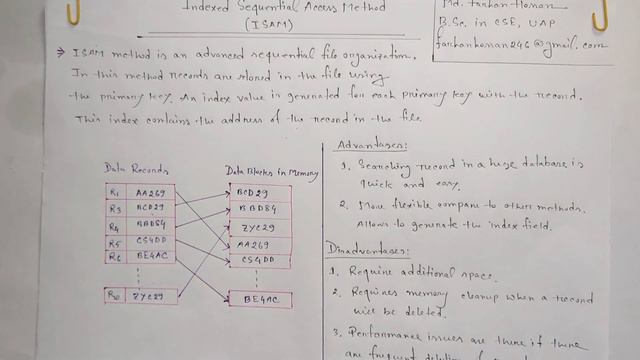 Indexed Sequential Access Method
(ISAM)
Md. Farhan Honan
B.Sc. in CSE, UAP
farhanhonan246@gmail.com
→ ISAM method is an advanced sequential file organization.
In this method records are stored in the file using
the primary key. An index value is generated for each primary key with the record.
This index contains the address of the record in the file.
Data Records
R1 AA269
R3 BCD29
R4 BBD84
R5 CS4DD
R6 BE4AC
R10 ZYC29
Data Blocks in Memory
BCD29
BBD84
ZYC29
AA269
CS4DD
BE4AC
Advantages:
1. Searching record in a huge database is
quick and easy.
2. More flexible compare to others methods.
Allows to generate the index field.
Disadvantages:
1. Require additional space.
2. Requires memory cleanup when a record
will be deleted.
3. Performance issues are there if there
are frequent deletion